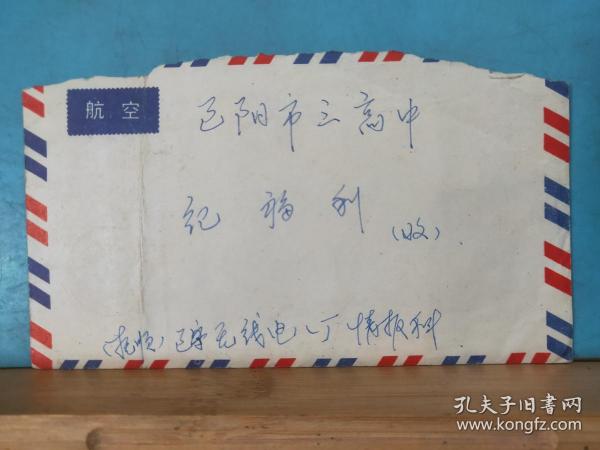 航空
辽阳市三高中
纪福利
(收)
(抚顺)辽宁无线电八厂情报科
孔夫子旧书网
www.kongfz.com